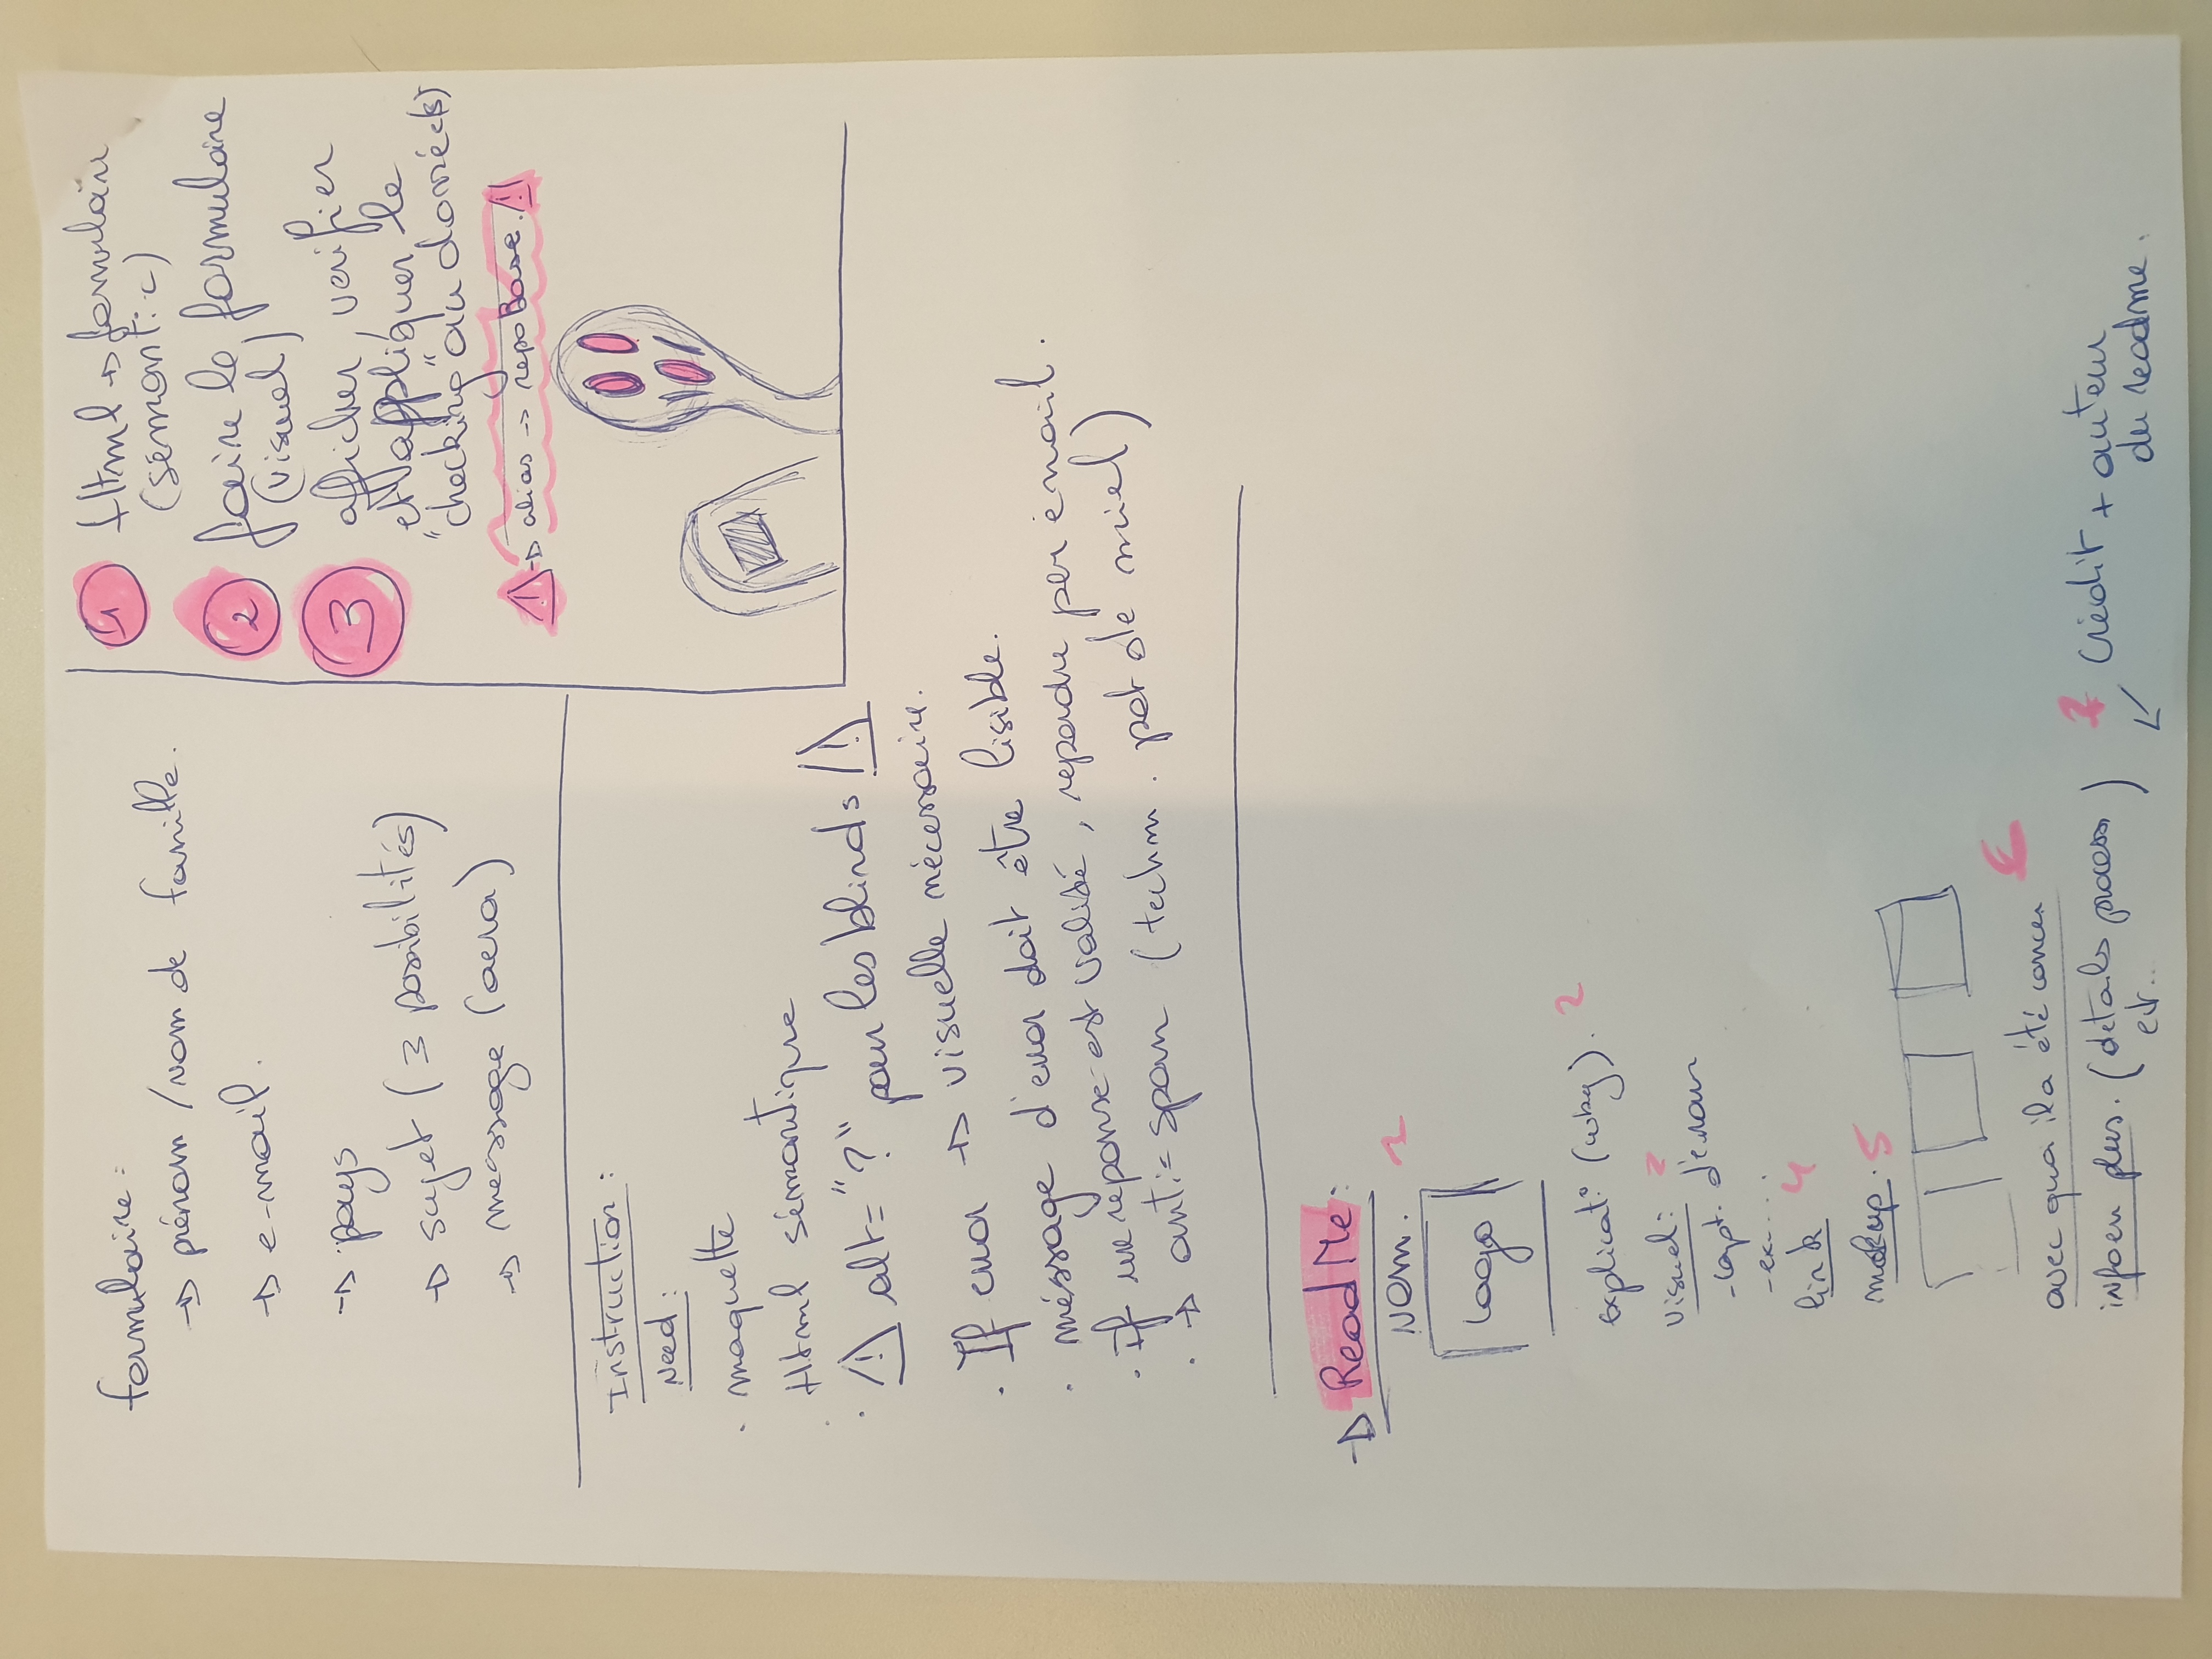 formulaire :
→ prénom / nom de famille.
→ e-mail.
→ pays
→ sujet (3 possibilités)
→ message (aera)
1 Html → formulaire
(sémantic)
2 faire le formulaire
(visuel)
3 afficher, verifier
et appliquer le
"checking" au donnée(s)
⚠ → alias → repoBase. ⚠
Instruction :
Need :
· maquette
· Html sémantique
· ⚠ alt= "?" pour les blinds ⚠
· If error → visuelle nécessaire.
· méssage d'error doit être lisible.
· If une réponse est validé, repondre par émail.
· → anti-spam (techn. pot de miel)
→ ReadMe :
Nom. 1
Logo
explicat° (why). 2
visuel : 3
- capt. d'écran
- ex....
link 4
mokup. 5
avec quoi il a été concu 6
info en plus. (détails process
ect...)
7 Crédit + auteur
du readme.